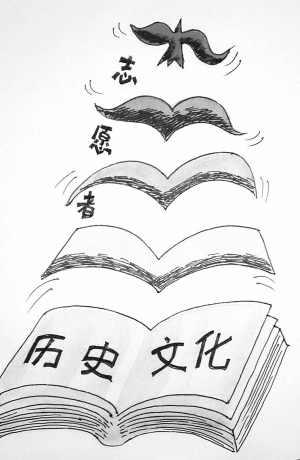 志
愿
者
历史 文化